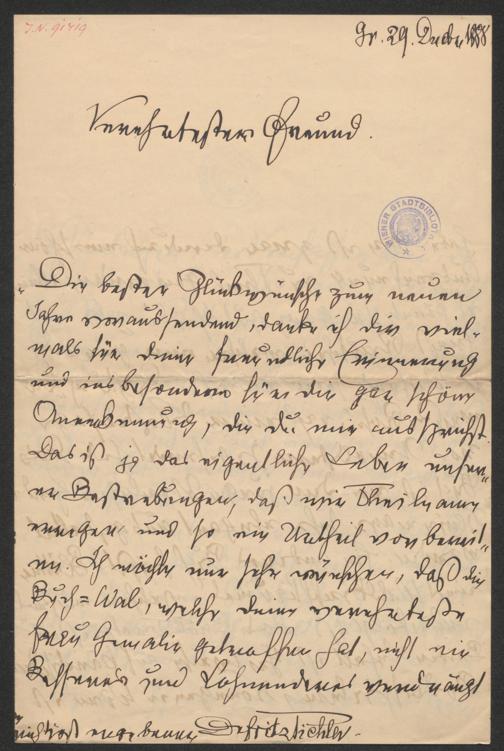 J.N. 91219
Gr. 29. Decbr 1888
Verehrtester Freund.
WIENER STADTBIBLIOTHEK
Die besten Glückwünsche zum neuen
Jahre voraussendend, danke ich dir viel-
mals für deine freundliche Erinnerung
und insbesondere für die gar schöne
Anerkennung, die du mir aussprichst.
Das ist ja das eigentliche Leben unser-
er Bestrebungen, daß wir Theilname
erregen und so ein Urtheil vorberei-
en. Ich möchte nur sehr wünschen, daß die
Buch=Wal, welche deine verehrteste
Frau Gemalin getroffen hat, nicht ein
Besseres und Lohnenderes verdrängt
ergebener Dr Fritz Pichler.